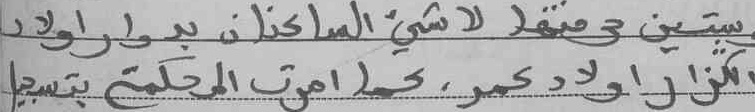 ستين حي منقد لا شيء الساكنان بدوار اولاد
الكزار اولاد عمر، كما امرت المحكمة بتسجيل